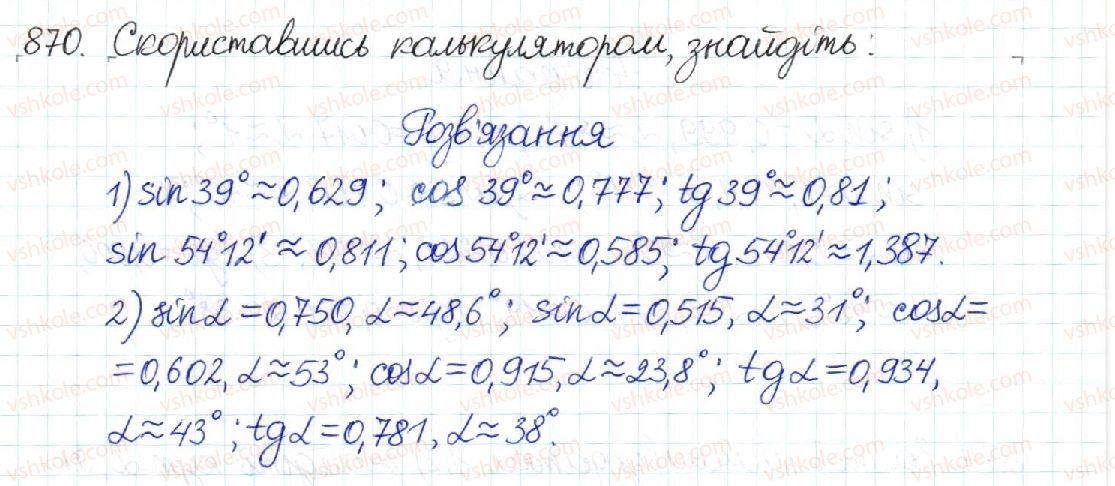 870. Скориставшись калькулятором, знайдіть:
Розв'язання
1) sin 39° ≈ 0,629; cos 39° ≈ 0,777; tg 39° ≈ 0,81;
sin 54°12' ≈ 0,811; cos 54°12' ≈ 0,585; tg 54°12' ≈ 1,387.
2) sin α = 0,750, α ≈ 48,6°; sin α = 0,515, α ≈ 31°; cos α =
= 0,602, α ≈ 53°; cos α = 0,915, α ≈ 23,8°; tg α = 0,934,
α ≈ 43°; tg α = 0,781, α ≈ 38°.
vshkole.com